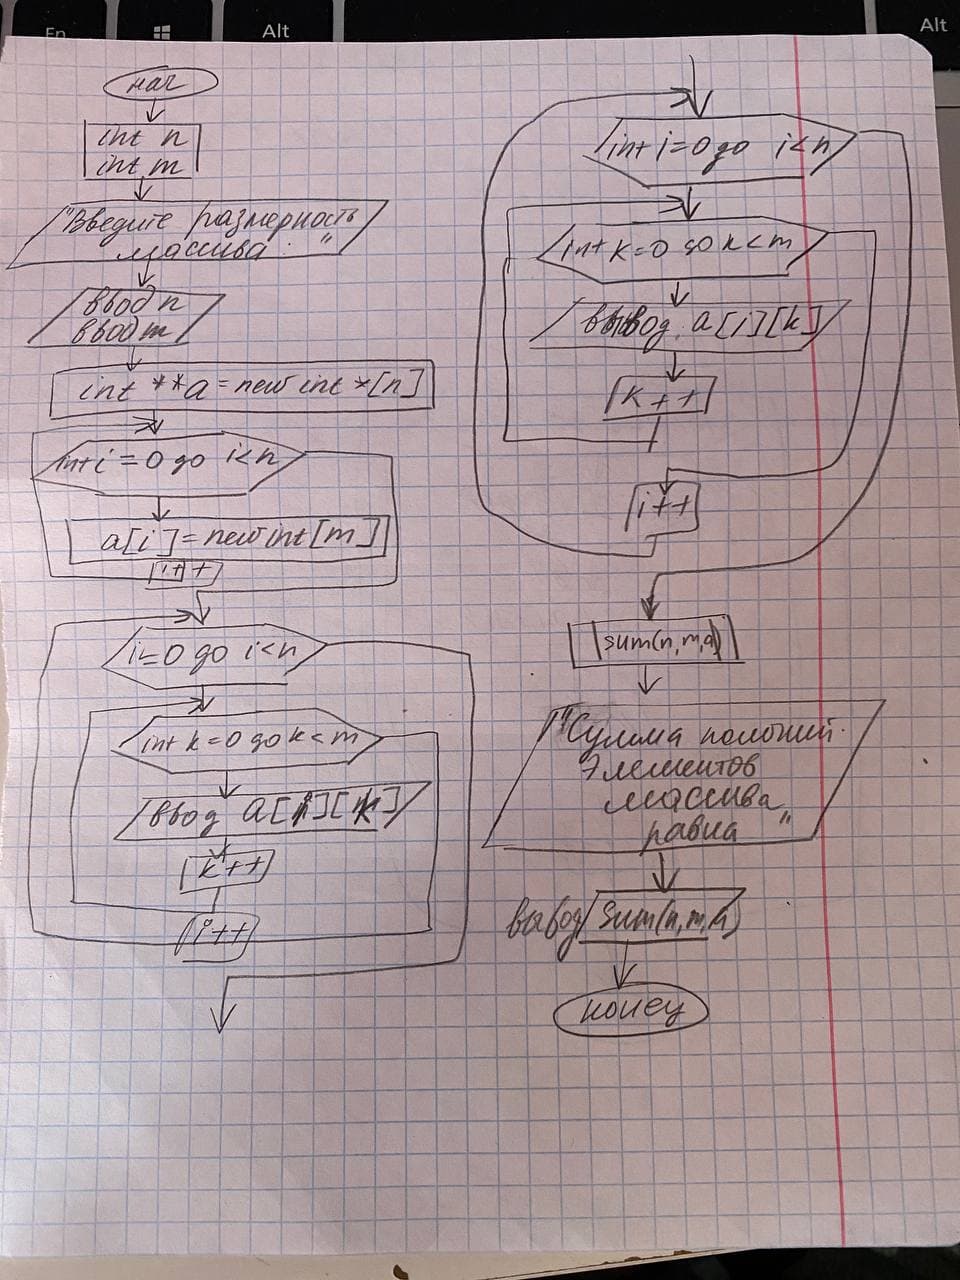 En
Alt
Alt
нач
int n
int m
"Введите размерность
массива: "
ввод n
ввод m
int **a = new int *[n]
int i = 0 до i < n
a[i] = new int [m]
i++
i = 0 до i < n
int k = 0 до k < m
ввод a[i][k]
k++
i++
int i = 0 до i < n
int k = 0 до k < m
вывод a[i][k]
k++
i++
sum(n, m, a)
"Сумма
элементов
массива
равна "
вывод sum(n, m, a)
конец